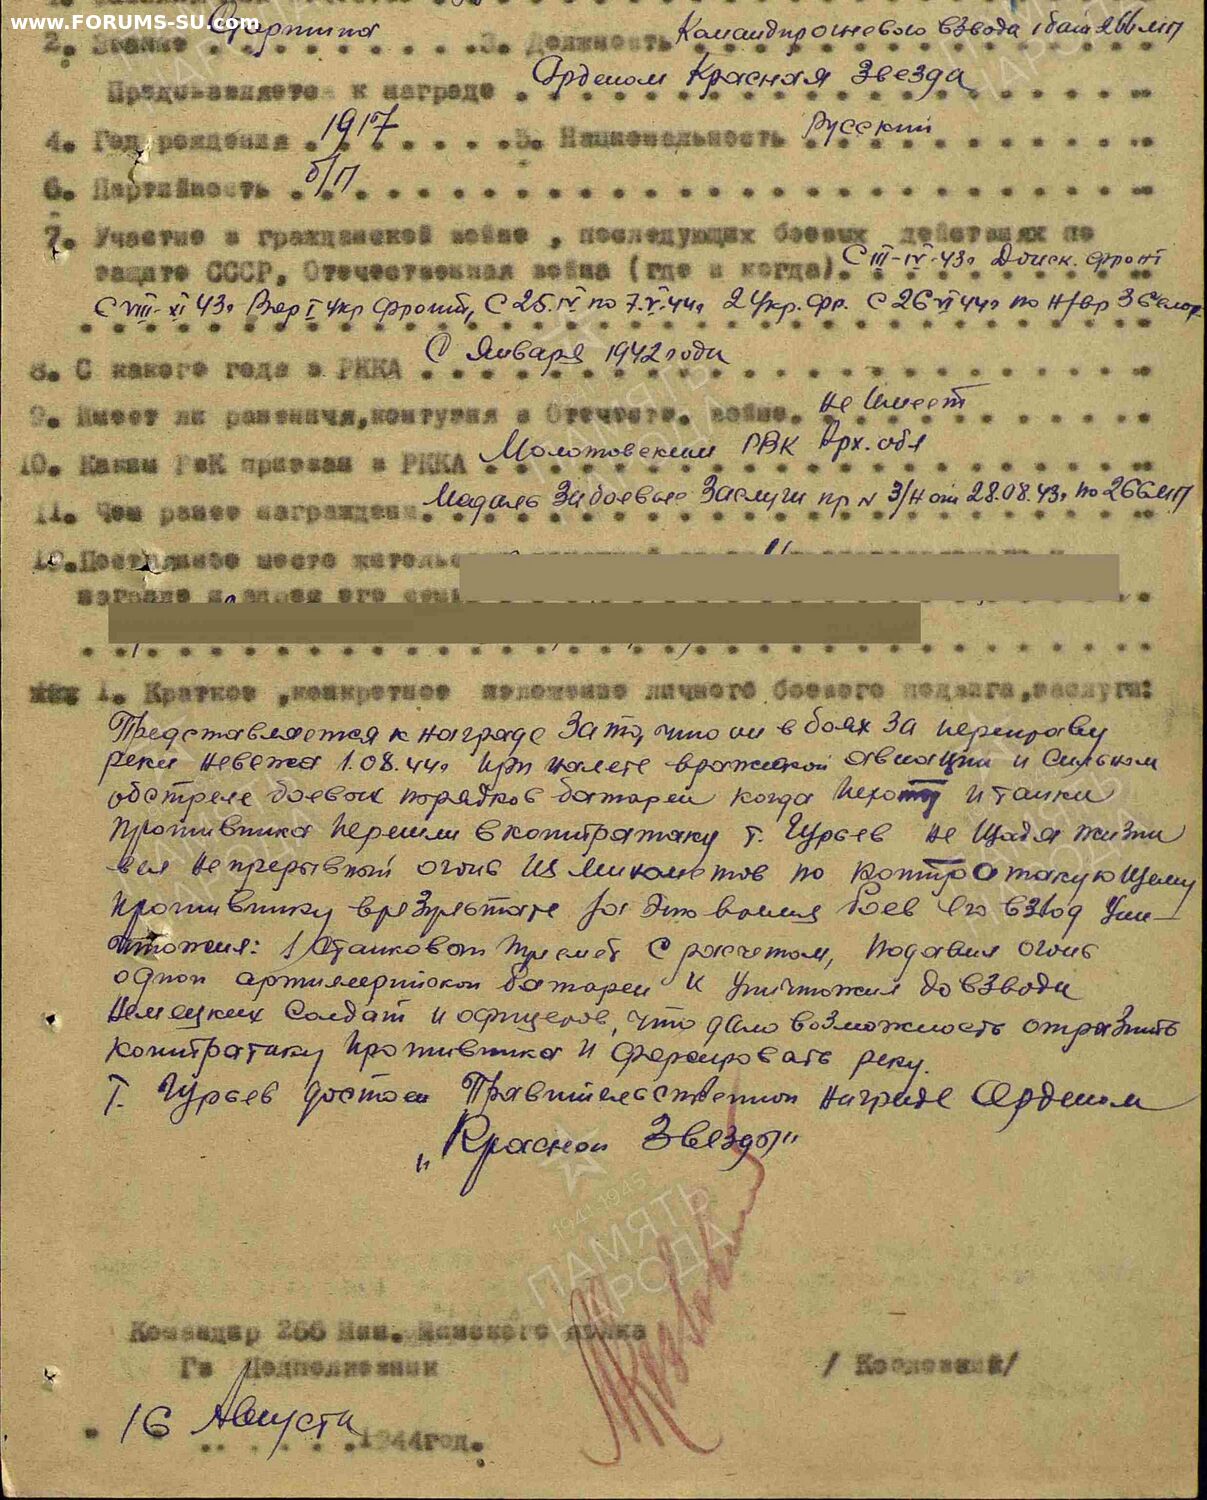 www.FORUMS-SU.com
2. Звание Старшина 3. Должность Командир огневого взвода 1 бат 266 МП
Представляется к награде Орденом Красная Звезда
4. Год рождения 1917 5. Национальность Русский
6. Партийность б/п
7. Участие в гражданской войне, последующих боевых действиях по
защите СССР, Отечественная война (где и когда). С III-IV-43г Донск. фронт
С VIII-XI 43г Вор I Укр фронт, С 25.IV по 7.V.44г 2 Укр. фр. С 26 VI 44г по н/вр 3 Белор.
8. С какого года в РККА С Января 1942 года
9. Имеет ли ранения, контузия в Отечеств. войне. Не Имеет
10. Каким РвК призван в РККА Молотовским РВК Арх. обл
11. Чем ранее награждена. Медаль За боевые Заслуги пр N 3/н от 28.08.43г по 266 МП
12. Постоянное место жительс
награде и адрес его семьи
1. Краткое, конкретное изложение личного боевого подвига, заслуги:
Представляется к награде За то, что он в боях За переправу
реки Невежа 1.08.44г при налете вражеской авиации и Сильном
обстреле боевых порядков батареи когда Пехота и танки
противника перешли в контратаку т. Гурьев не Щадя жизни
вел непрерывный огонь из минометов по контратакующему
противнику в результате за это время боев его взвод уни-
чтожил: 1 станковый пулемет с расчетом, подавил огонь
одной артиллерийской батареи и уничтожил до взвода
Немецких Солдат и офицеров, что дало возможность отразить
контратаку противника и форсировать реку.
Т. Гурьев достоин Правительственной награде Орденом
„Красной Звезды"
1941-1945
ПАМЯТЬ
НАРОДА
Командир 266 Мин. Минского полка
Гв Подполковник / Козловский/
16 Августа 1944год.